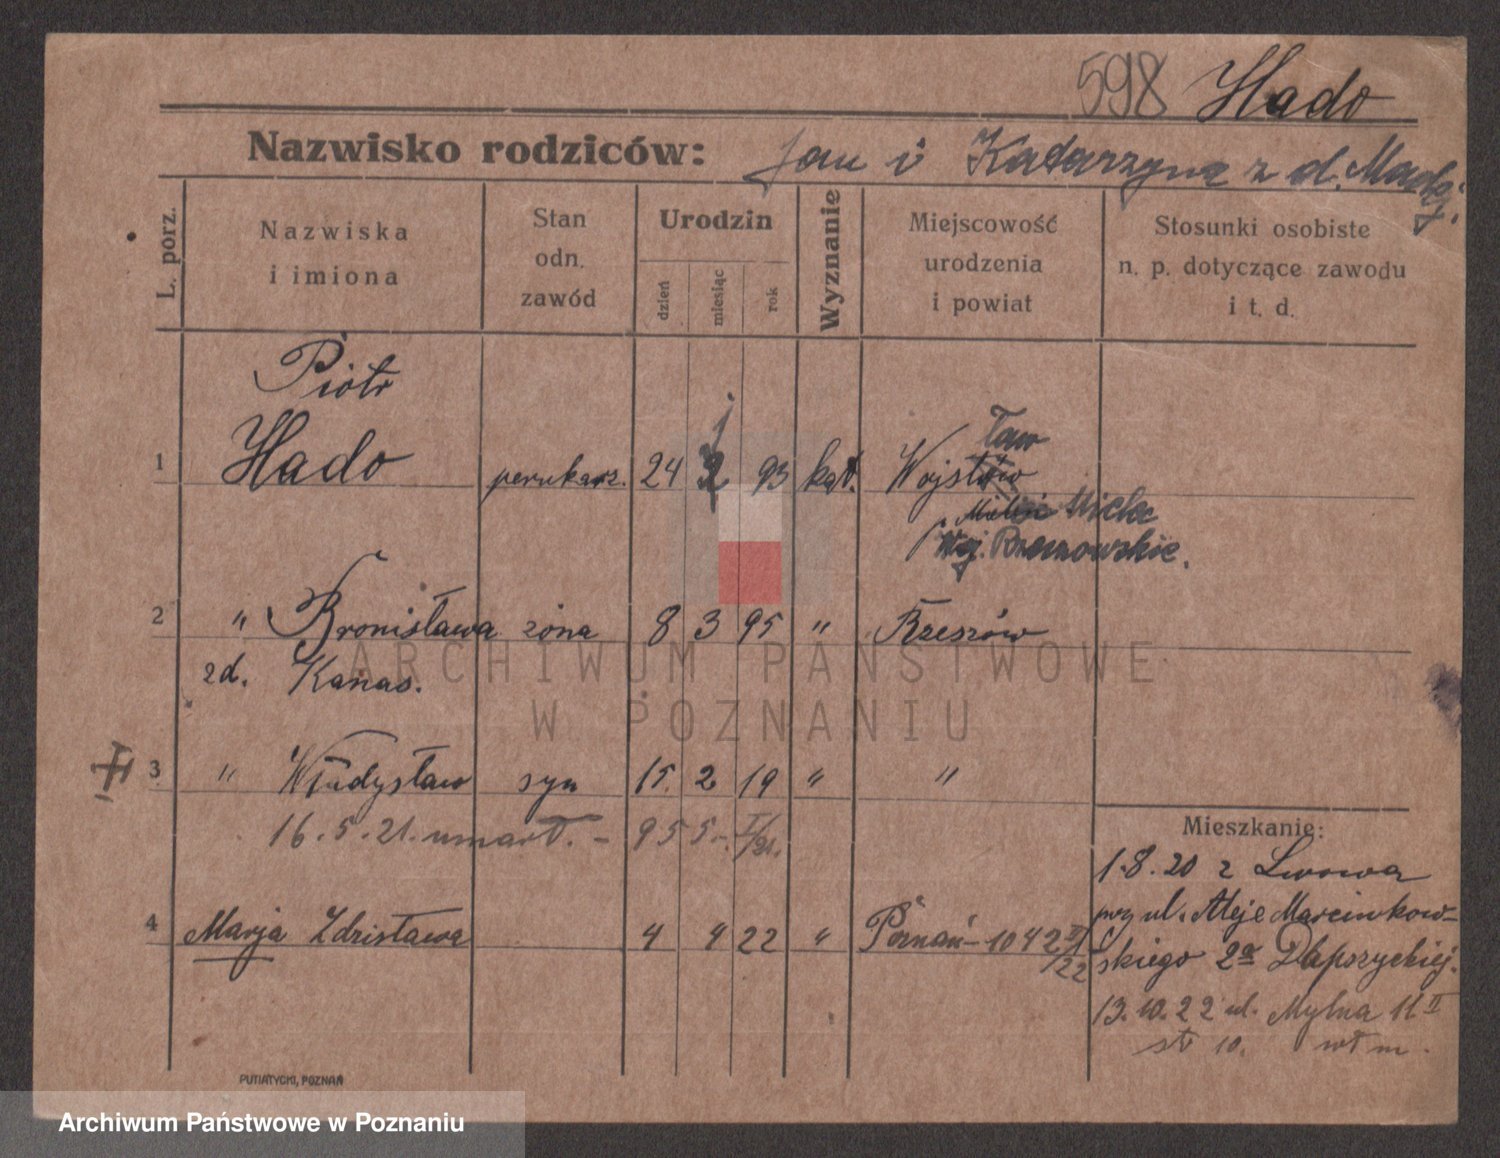 598 Hado
Nazwisko rodziców: Jan i Katarzyna z d. Madej.
L. porz.
Nazwiska
i imiona
Stan
odn.
zawód
Urodzin
dzień
miesiąc
rok
Wyznanie
Miejscowość
urodzenia
i powiat
Stosunki osobiste
n. p. dotyczące zawodu
i t. d.
Piotr
1 Hado perukarz. 24 93 kat. Wojsław
Mielec
Rzeszowskie.
2 " Bronisława żona 8 3 95 " Rzeszów
zd. Kanas.
3 " Władysław syn 15. 2 19 " "
16. 5. 21. umarł. - 955 - I/21.
4 Marja Zdzisława 4 4 22 " Poznań - 1042 II/22
Mieszkanie:
1.8.20 z Lwowa
przy ul. Aleje Marcinkow-
skiego 2a
13.10.22 ul. Mylna 11 II
str 10. wł m.
PUTIATYCKI, POZNAŃ
ARCHIWUM PAŃSTWOWE
W POZNANIU
Archiwum Państwowe w Poznaniu